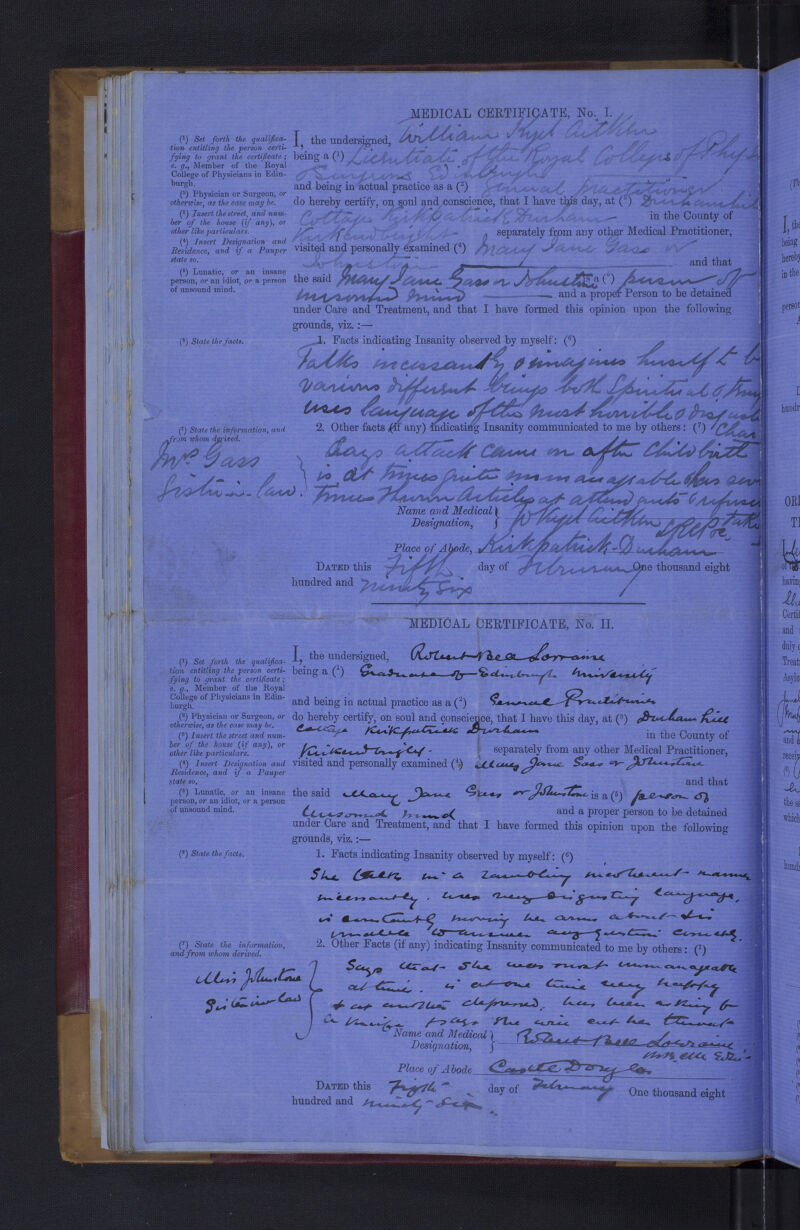 MEDICAL CERTIFICATE, No. I.
(1) Set forth the qualifica-
tion entitling the person certi-
fying to grant the certificate;
e. g., Member of the Royal
College of Physicians in Edin-
burgh.
(2) Physician or Surgeon, or
otherwise, as the case may be.
(3) Insert the street, and num-
ber of the house (if any), or
other like particulars.
(4) Insert Designation and
Residence, and if a Pauper
state so.
(5) Lunatic, or an insane
person, or an idiot, or a person
of unsound mind.
I, the undersigned, William Kyd Aitken
being a (1) Licentiate of the Royal Colleges of Phys
& Surgeons Edinburgh
and being in actual practice as a (2) General practitioner
do hereby certify, on soul and conscience, that I have this day, at (3) Durhamhill
Cottage Kirkpatrick Durham in the County of
Kirkcudbright separately from any other Medical Practitioner,
visited and personally examined (4) Mary Jane Gass or
Johnstone and that
the said Mary Jane Gass or Johnstone is a (5) person of
unsound mind and a proper Person to be detained
under Care and Treatment, and that I have formed this opinion upon the following
grounds, viz. :—
(6) State the facts.
1. Facts indicating Insanity observed by myself: (6)
Talks incessantly & imagines herself to b
various different beings both Spiritual &
uses language of the most horrible & disgust
(7) State the information, and
from whom derived.
2. Other facts (if any) indicating Insanity communicated to me by others: (7)
Mrs Gass
Sister-in-law.
Says attack came on after Child birth
is at times quite unmanageable has
times thrown Articles at attendants & refuses
Name and Medical
Designation, W Kyd Aitken
Place of Abode, Kirkpatrick-Durham
DATED this Fifth day of February One thousand eight
hundred and ninety six
MEDICAL CERTIFICATE, No. II.
(1) Set forth the qualifica-
tion entitling the person certi-
fying to grant the certificate;
e. g., Member of the Royal
College of Physicians in Edin-
burgh.
(2) Physician or Surgeon, or
otherwise, as the case may be.
(3) Insert the street, and num-
ber of the house (if any), or
other like particulars.
(4) Insert Designation and
Residence, and if a Pauper
state so.
(5) Lunatic, or an insane
person, or an idiot, or a person
of unsound mind.
I, the undersigned, Robert Bell Lorraine
being a (1) Graduate of Edinburgh University
and being in actual practice as a (2) General Practitioner
do hereby certify, on soul and conscience, that I have this day, at (3) Durham hill
Cottage Kirkpatrick Durham in the County of
Kirkcudbright. separately from any other Medical Practitioner,
visited and personally examined (4) Mary Jane Gass or Johnstone
and that
the said Mary Jane Gass or Johnstone is a (5) person of
Unsound mind and a proper person to be detained
under Care and Treatment, and that I have formed this opinion upon the following
grounds, viz. :—
(6) State the facts.
1. Facts indicating Insanity observed by myself: (6)
She talks in a rambling incoherent manner
incessantly. uses very disgusting language,
is constantly moving her arms about & is
unable to answer any question correctly.
(7) State the information,
and from whom derived.
2. Other Facts (if any) indicating Insanity communicated to me by others: (7)
Miss Johnstone
Sister in law
Says that she was most unmanageable
at times. is at one time very happy
& at another depressed. has been asking for
a knife & says she will cut her throat
Name and Medical
Designation, Robert Bell Lorraine
M.B. CM. Edin
Place of Abode Castle Douglas
DATED this Fifth day of February One thousand eight
hundred and ninety Six.